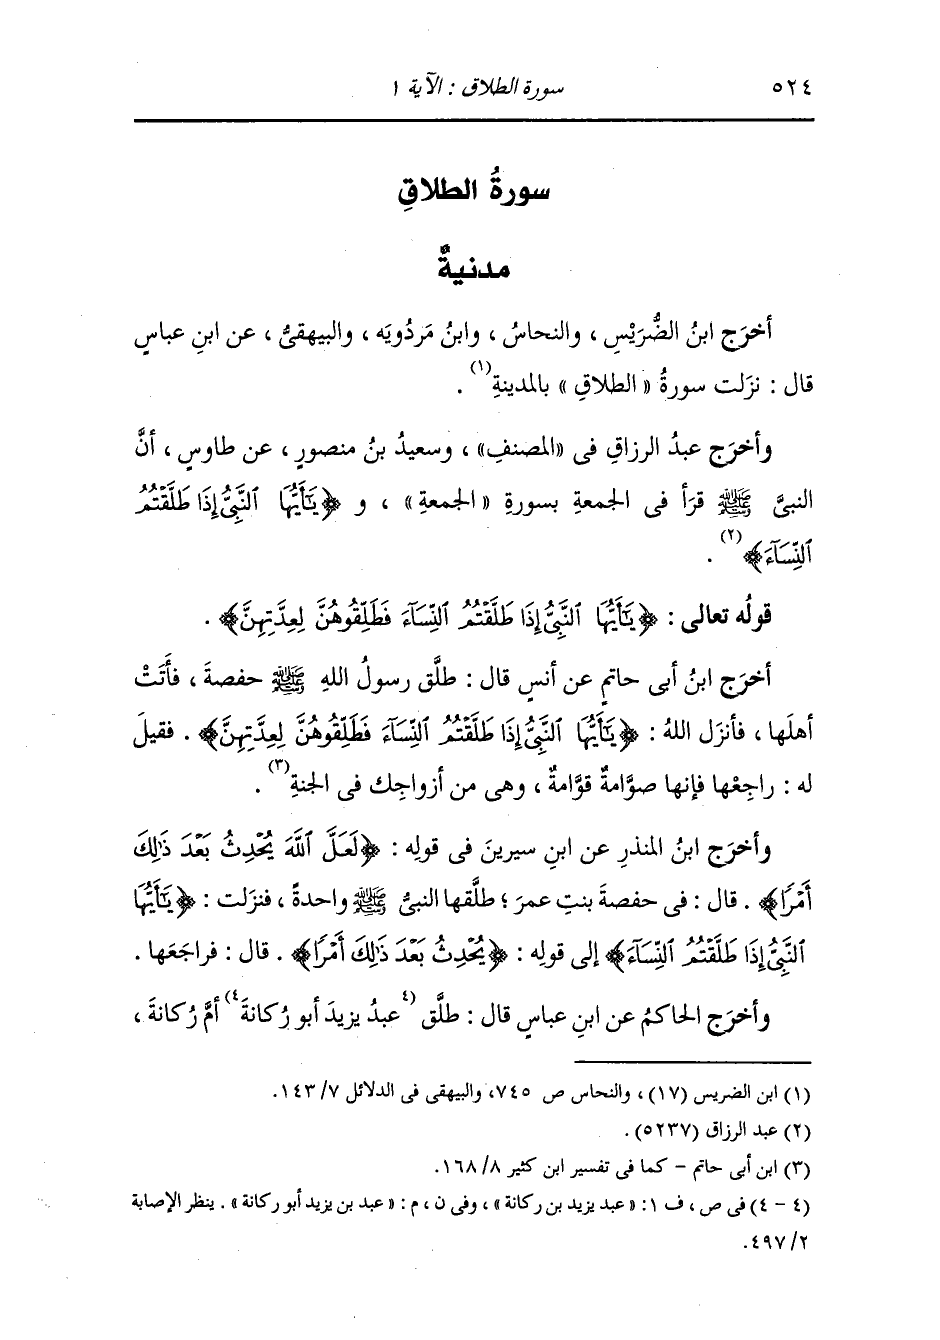 ٥٢٤
سورة الطلاق : الآية ١
سورةُ الطلاقِ
مدنيةٌ
أخرَج ابنُ الضُّرَيْسِ ، والنحاسُ ، وابنُ مَردُويَه ، والبيهقىُّ ، عن ابنِ عباسٍ
قال : نزَلت سورةُ « الطلاقِ » بالمدينةِ(١) .
وأخرَج عبدُ الرزاقِ فى «المصنفِ» ، وسعيدُ بنُ منصورٍ ، عن طاوسٍ ، أنَّ
النبىَّ ﷺ قرَأ فى الجمعةِ بسورةِ « الجمعةِ » ، و ﴿يَٰٓأَيُّهَا ٱلنَّبِىُّ إِذَا طَلَّقْتُمُ
ٱلنِّسَآءَ﴾(٢) .
قولُه تعالى : ﴿يَٰٓأَيُّهَا ٱلنَّبِىُّ إِذَا طَلَّقْتُمُ ٱلنِّسَآءَ فَطَلِّقُوهُنَّ لِعِدَّتِهِنَّ﴾ .
أخرَج ابنُ أبى حاتمٍ عن أنسٍ قال : طلَّق رسولُ اللهِ ﷺ حفصةَ ، فأَتَتْ
أهلَها ، فأنزَل اللهُ : ﴿يَٰٓأَيُّهَا ٱلنَّبِىُّ إِذَا طَلَّقْتُمُ ٱلنِّسَآءَ فَطَلِّقُوهُنَّ لِعِدَّتِهِنَّ﴾ . فقيلَ
له : راجِعْها فإنها صوَّامةٌ قوَّامةٌ ، وهى من أزواجِك فى الجنةِ(٣) .
وأخرَج ابنُ المنذرِ عن ابنِ سيرينَ فى قولِه : ﴿لَعَلَّ ٱللَّهَ يُحْدِثُ بَعْدَ ذَٰلِكَ
أَمْرًا﴾ . قال : فى حفصةَ بنتِ عمرَ ؛ طلَّقها النبىُّ ﷺ واحدةً ، فنزَلت : ﴿يَٰٓأَيُّهَا
ٱلنَّبِىُّ إِذَا طَلَّقْتُمُ ٱلنِّسَآءَ﴾ إلى قولِه : ﴿يُحْدِثُ بَعْدَ ذَٰلِكَ أَمْرًا﴾ . قال : فراجَعَها .
وأخرَج الحاكمُ عن ابنِ عباسٍ قال : طلَّق (٤عبدُ يزيدَ أبو رُكانةَ٤) أمَّ رُكانةَ ،
(١) ابن الضريس (١٧) ، والنحاس ص ٧٤٥، والبيهقى فى الدلائل ٧/ ١٤٣.
(٢) عبد الرزاق (٥٢٣٧) .
(٣) ابن أبى حاتم – كما فى تفسير ابن كثير ٨/ ١٦٨.
(٤ – ٤) فى ص ، ف ١: « عبد يزيد بن ركانة » ، وفى ن ، م : « عبد بن يزيد أبو ركانة » . ينظر الإصابة
٢/ ٤٩٧.